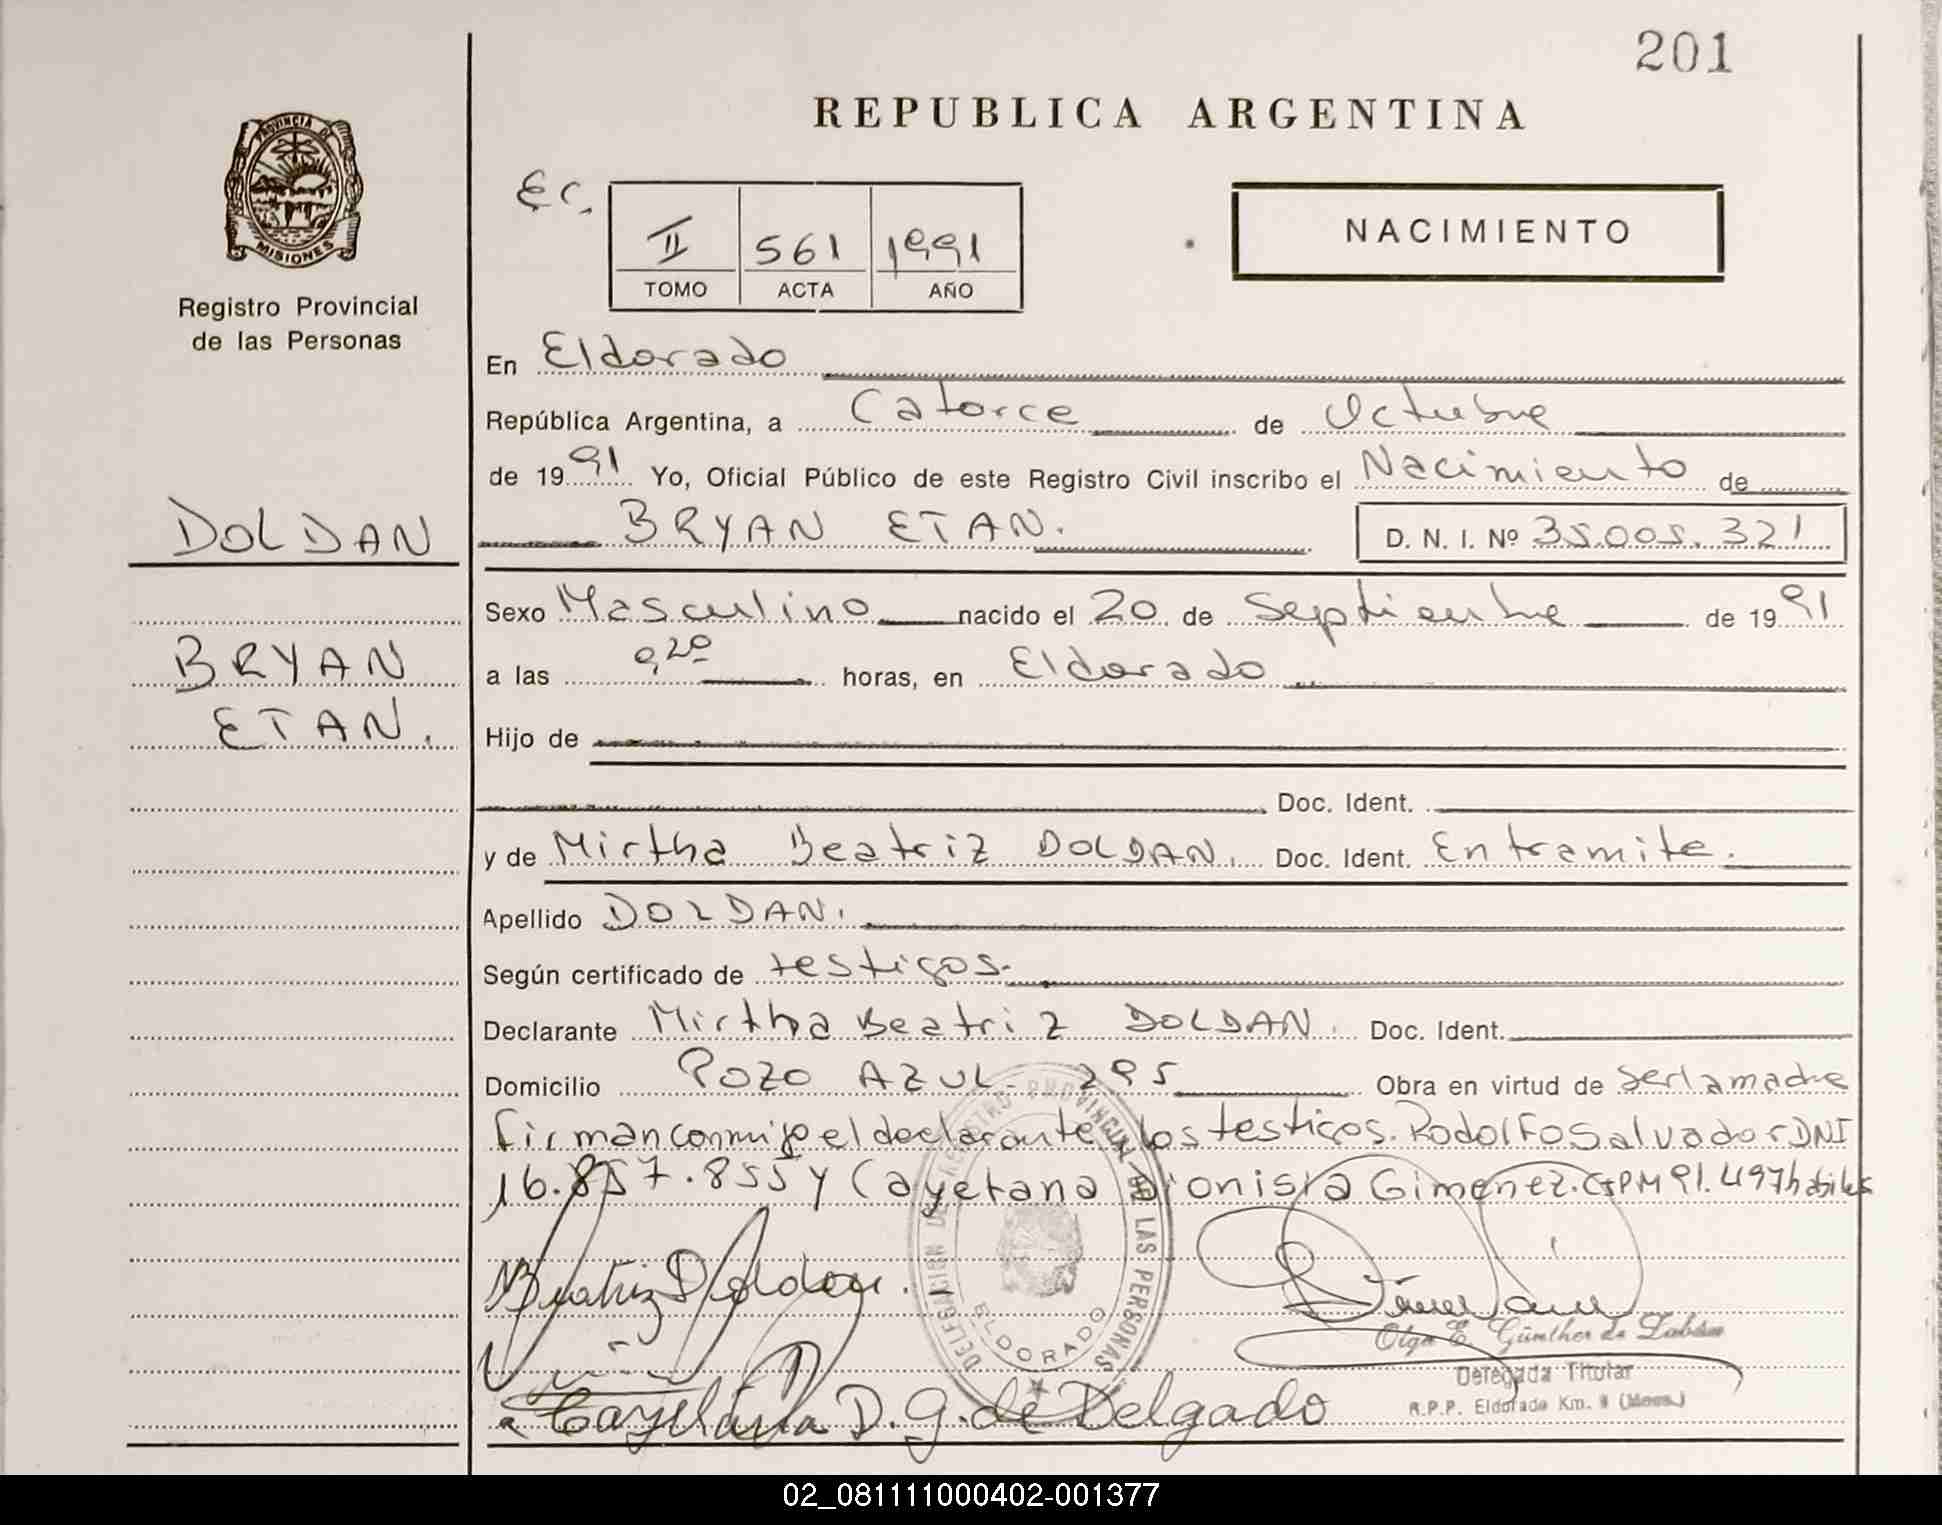 201
REPUBLICA ARGENTINA
PROVINCIA DE
MISIONES
Registro Provincial
de las Personas
Ec.
II 561 1991
TOMO ACTA AÑO
NACIMIENTO
En Eldorado
República Argentina, a Catorce de Octubre
de 1991 Yo, Oficial Público de este Registro Civil inscribo el Nacimiento de
DOLDAN
BRYAN ETAN. D. N. I. Nº 35.005.321
Sexo Masculino nacido el 20 de Septiembre de 1991
BRYAN
ETAN.
a las 9,20 horas, en Eldorado
Hijo de
Doc. Ident.
y de Mirtha Beatriz DOLDAN. Doc. Ident. En tramite.
Apellido DOLDAN.
Según certificado de testigos.
Declarante Mirtha Beatriz DOLDAN. Doc. Ident.
Domicilio POZO AZUL 295 Obra en virtud de ser la madre
firman conmigo el declarante y los testigos. Rodolfo Salvador DNI
16.857.855 y Cayetana Dionisia Gimenez. CIPM 91.497 habiles
DELEGACION DE REGISTRO PROVINCIAL DE LAS PERSONAS
ELDORADO
M Beatriz Doldan.
Olga E. Günther de Labán
Delegada Titular
R.P.P. Eldorado Km. 9 (Mnes.)
Cayetana D. G. de Delgado
02_081111000402-001377